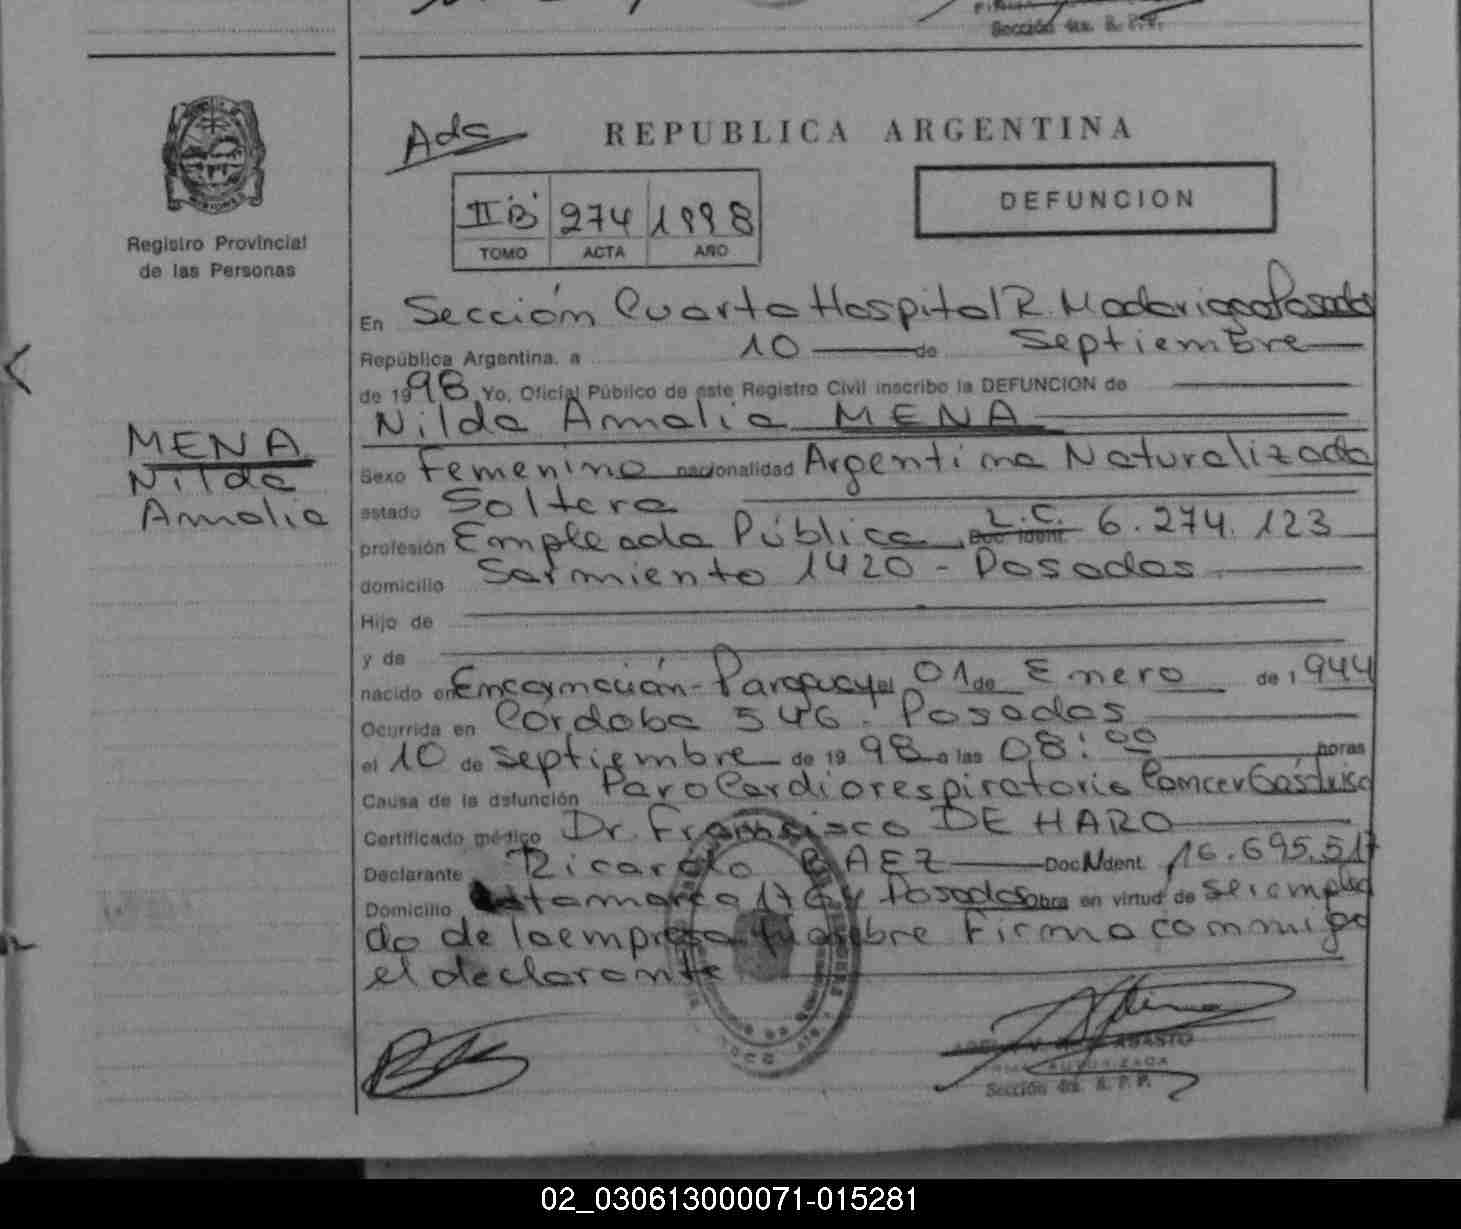 Sección 4ta. R. P. P.
Registro Provincial
de las Personas
REPUBLICA ARGENTINA
II B 274 1998
TOMO ACTA AÑO
DEFUNCION
En Sección Cuarta Hospital R. Madariaga Posadas
República Argentina, a 10 de Septiembre
de 1998 Yo, Oficial Público de este Registro Civil inscribo la DEFUNCION de
Nilda Amalia MENA
MENA
Nilda
Amalia
Sexo Femenino nacionalidad Argentina Naturalizada
estado Soltera
profesión Empleada Pública L.C. Doc Ident. 6.274.123
domicilio Sarmiento 1420 - Posadas
Hijo de
y de
nacido en Encarnación - Paraguay el 01 de Enero de 1944
Ocurrida en Córdoba 546 - Posadas
el 10 de Septiembre de 1998 a las 08:00 horas
Causa de la defunción Paro Cardiorespiratorio Cancer Gástrico
Certificado médico Dr. Francisco DE HARO
Declarante Ricardo BAEZ Doc N Ident. 16.695.517
Domicilio Posadas obra en virtud de ser emplea
do de la empresa fúnebre Firma conmigo
el declarante
AUTORIZADA
Sección 4ta. R. P. P.
02_030613000071-015281